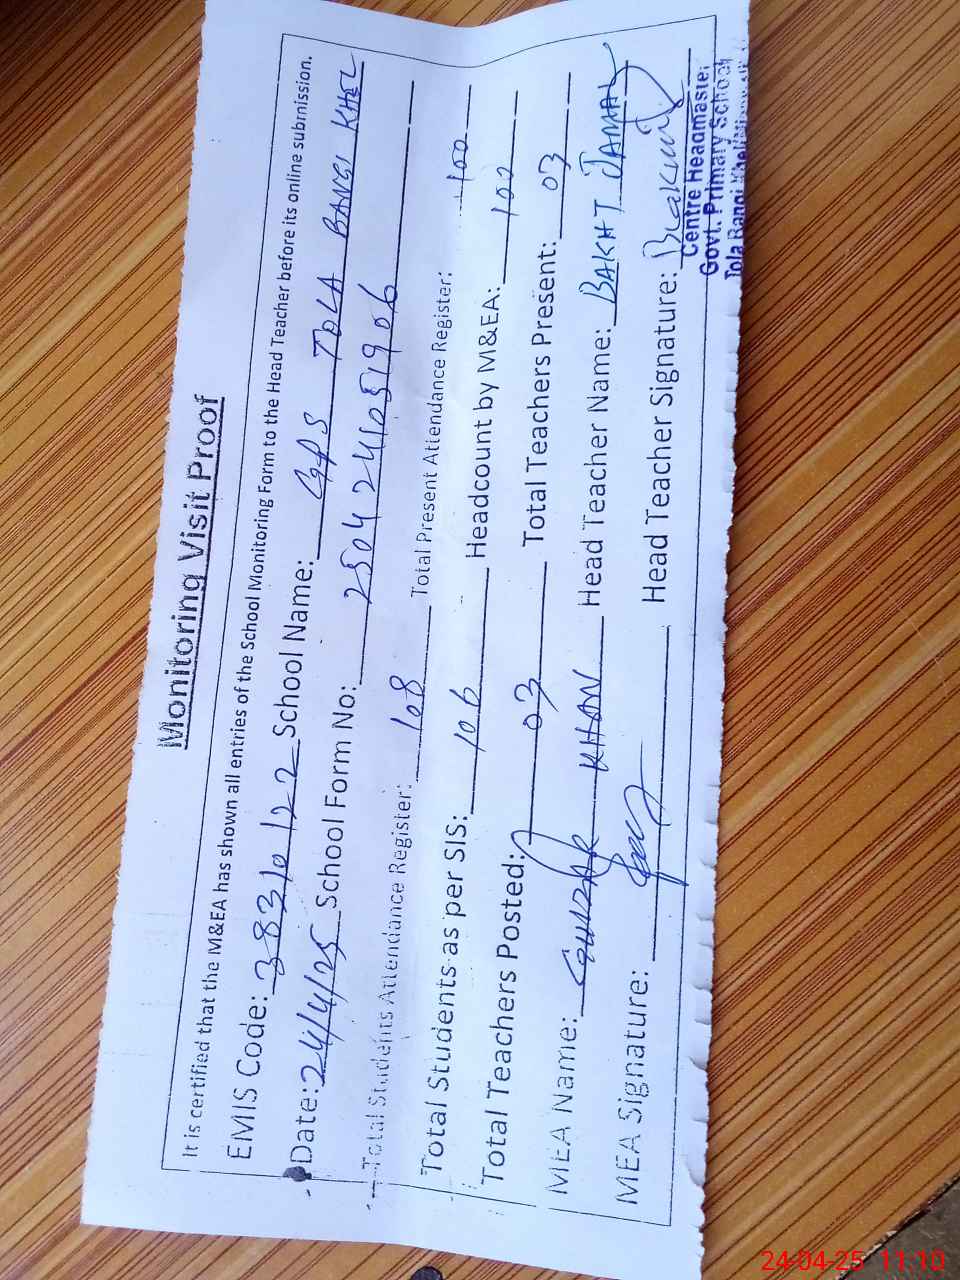 Monitoring Visit Proof
It is certified that the M&EA has shown all entries of the School Monitoring Form to the Head Teacher before its online submission.
EMIS Code: 38310122 School Name: GPS TOLA BANGI KHEL
Date: 24/4/25 School Form No: 2504241051906
Total Students Attendance Register: 108 Total Present Attendance Register: 100
Total Students as per SIS: 106 Headcount by M&EA: 100
Total Teachers Posted: 03 Total Teachers Present: 03
MEA Name: GULZAR KHAN Head Teacher Name: BAKHT JAMAL
MEA Signature: Head Teacher Signature:
Centre Headmaster
Govt. Primary School
Tola Bangi Khel
24-04-25 11:10